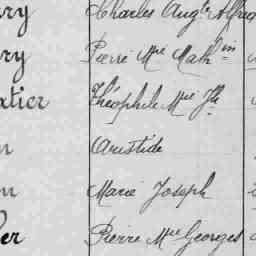 ry Charles Aug.te Alfred
ry Pierre M.rie Math.in
atier Théophile M.ie J.h
n Aristide
n Marie Joseph
er Pierre M.ie Georges